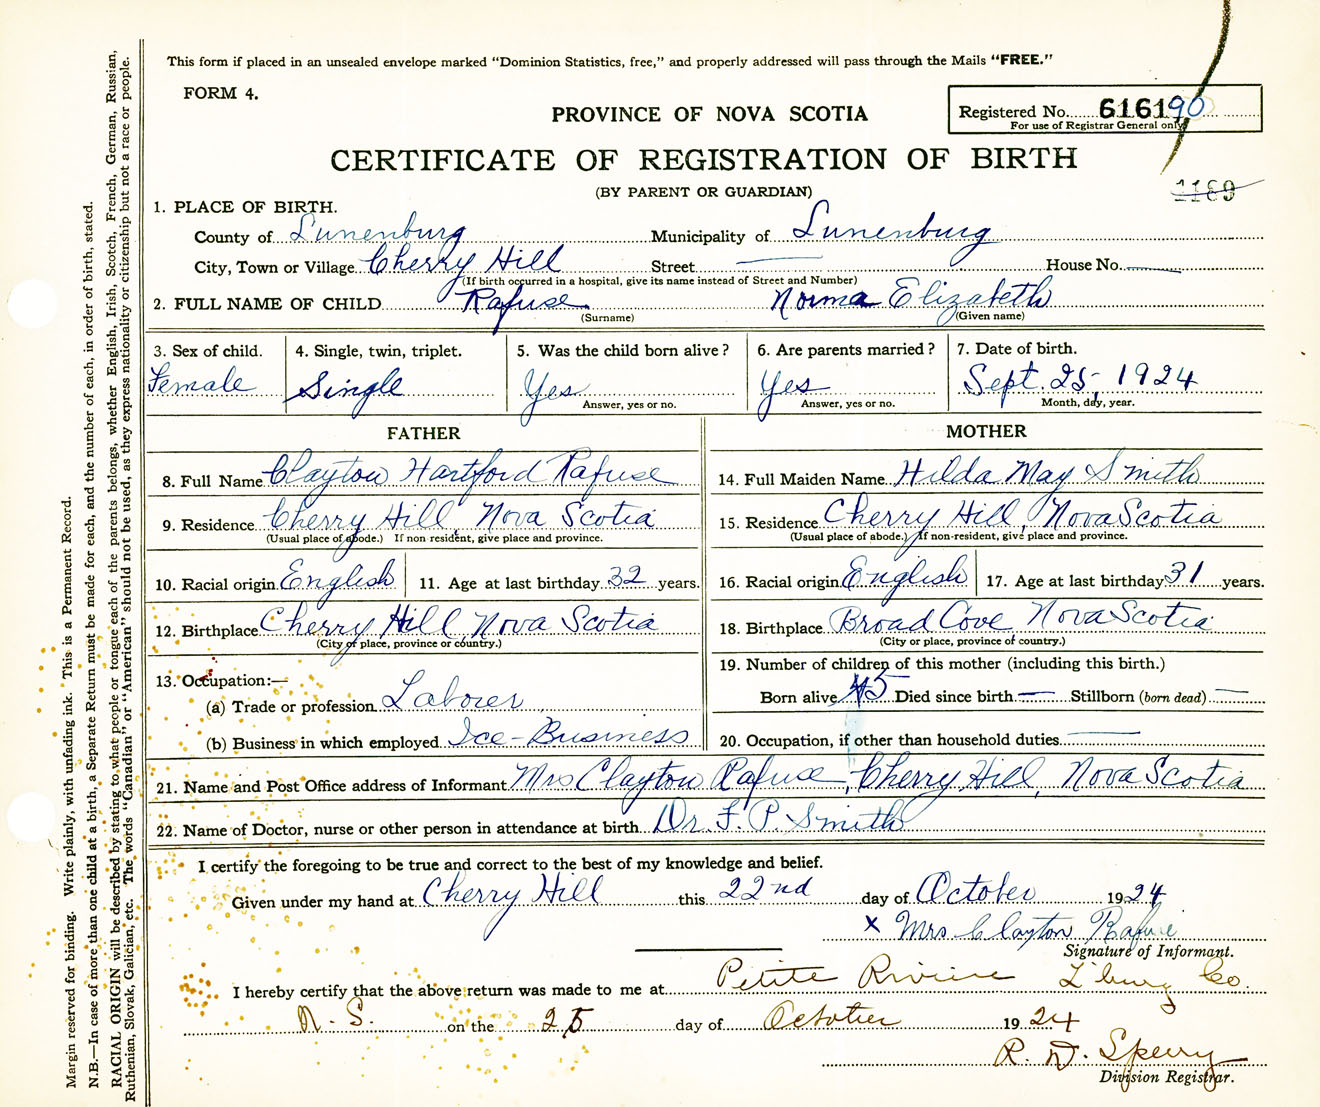 This form if placed in an unsealed envelope marked “Dominion Statistics, free,” and properly addressed will pass through the Mails “FREE.”
FORM 4.
PROVINCE OF NOVA SCOTIA
Registered No. 616190
For use of Registrar General only
CERTIFICATE OF REGISTRATION OF BIRTH
(BY PARENT OR GUARDIAN)
1189
1. PLACE OF BIRTH.
County of Lunenburg Municipality of Lunenburg
City, Town or Village Cherry Hill Street — House No. —
(If birth occurred in a hospital, give its name instead of Street and Number)
2. FULL NAME OF CHILD Rafuse Norma Elizabeth
(Surname) (Given name)
3. Sex of child. 4. Single, twin, triplet. 5. Was the child born alive? 6. Are parents married? 7. Date of birth.
Female Single Yes Yes Sept. 25, 1924
Answer, yes or no. Answer, yes or no. Month, day, year.
FATHER MOTHER
8. Full Name Clayton Hartford Rafuse 14. Full Maiden Name Hilda May Smith
9. Residence Cherry Hill, Nova Scotia 15. Residence Cherry Hill, Nova Scotia
(Usual place of abode.) If non-resident, give place and province. (Usual place of abode.) If non-resident, give place and province.
10. Racial origin English 11. Age at last birthday 32 years. 16. Racial origin English 17. Age at last birthday 31 years.
12. Birthplace Cherry Hill, Nova Scotia 18. Birthplace Broad Cove Nova Scotia
(City or place, province or country.) (City or place, province of country.)
13. Occupation:— 19. Number of children of this mother (including this birth.)
(a) Trade or profession Laborer Born alive 5 Died since birth — Stillborn (born dead) —
(b) Business in which employed Ice-Business 20. Occupation, if other than household duties —
21. Name and Post Office address of Informant Mrs Clayton Rafuse, Cherry Hill, Nova Scotia
22. Name of Doctor, nurse or other person in attendance at birth Dr. F. P. Smith
I certify the foregoing to be true and correct to the best of my knowledge and belief.
Given under my hand at Cherry Hill this 22nd day of October 1924
x Mrs Clayton Rafuse
Signature of Informant.
I hereby certify that the above return was made to me at Petite Riviere L'burg Co.
N. S. on the 25 day of October 1924
R. D. Sperry
Division Registrar.
Margin reserved for binding. Write plainly, with unfading ink. This is a Permanent Record.
N.B.—In case of more than one child at a birth, a Separate Return must be made for each, and the number of each, in order of birth, stated.
RACIAL ORIGIN will be described by stating to what people or tongue each of the parents belongs, whether English, Irish, Scotch, French, German, Russian,
Ruthenian, Slovak, Galician, etc. The words “Canadian” or “American” should not be used, as they express nationality or citizenship but not a race or people.